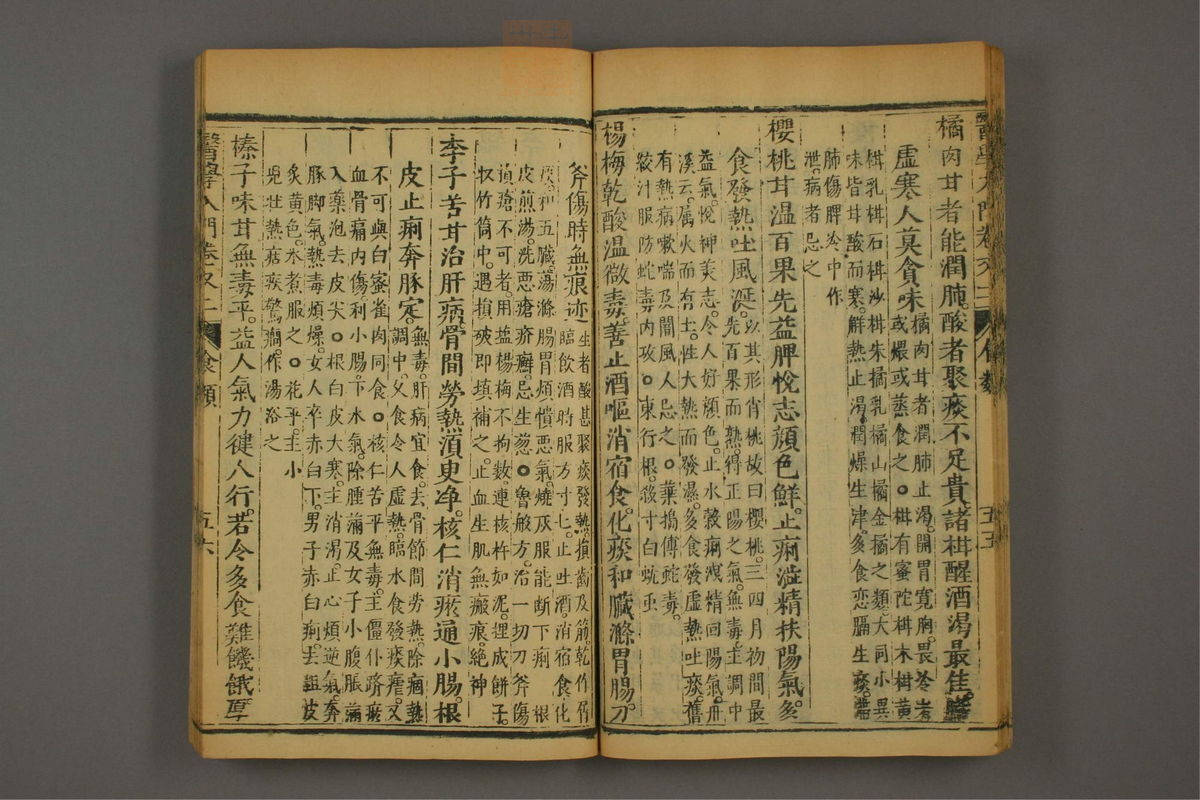 醫學入門卷之二 食類 五十五
橘肉甘者能潤肺酸者聚痰不足貴諸柑醒酒渴最佳
虛寒人莫貪味橘肉甘者潤肺止渴開胃寬胸畏冷者
或煨或蒸食之○柑有蜜陀柑木柑黃
柑乳柑石柑沙柑朱橘乳橘山橘金橘之類大同小異
味皆甘酸而寒解熱止渴潤燥生津多食恋膈生痰滯
肺傷脾冷中作
泄病者忌之
櫻桃甘温百果先益脾悅志顔色鮮止痢澁精扶陽氣多
食發熱吐風涎以其形肖桃故曰櫻桃三四月初間最
先百果而熟得正陽之氣無毒主調中
益氣悅神美志令人好顔色止水穀痢洩精回陽氣丹
溪云属火而有土性大熱而發濕多食發虛熱吐痰舊
有熱病嗽喘及闇風人忌之○葉搗傅蛇毒
絞汁服防蛇毒内攻○東行根殺寸白蚘虫
楊梅乾酸温微毒善止酒嘔消宿食化痰和臟滌胃腸刀
斧傷時無痕迹生者酸甚聚痰發熱損齒及筋乾作屑
臨飲酒時服方寸匕止吐酒消宿食化
痰和五臟蕩滌腸胃煩憒悪氣燒灰服能断下痢 根
皮煎湯洗悪瘡疥癬忌生葱○魯般方治一切刀斧傷
損瘡不可者用塩楊梅不拘数連核杵如泥捏成餅子
収竹筒中遇損破即填補之止血生肌無瘢痕絶神
李子苦甘治肝病骨間勞熱湏史净核仁消瘀通小腸根
皮止痢奔豚定無毒肝病宜食去骨節間労熱除痼熱
調中久食令人虛熱臨水食發痰瘧又
不可與白蜜雀肉同食○核仁苦平無毒主僵仆躋瘀
血骨痛内傷利小腸下水氣除腫滿及女子小腹脹滿
入藥泡去皮尖○根白皮大寒主消渴止心煩逆氣奔
豚脚氣熱毒煩燥女人卒赤白下男子赤白痢去麄皮
炙黃色水煮服之○花平主小
兒壮熱痁疾驚癇作湯浴之
榛子味甘無毒平益人氣力健人行若令多食難饑餓厚
醫學入門卷之二 食類 五十六